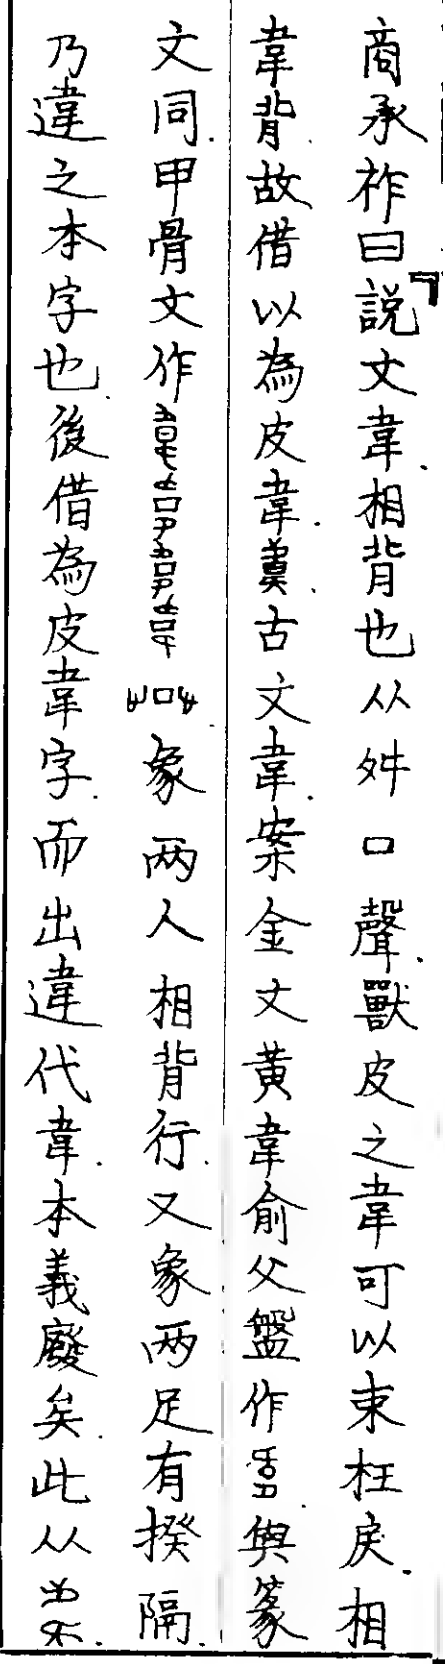 商承祚曰「説文韋.相背也从舛口聲.獸皮之韋可以束枉戾.相
韋背.故借以為皮韋.古文韋.案金文黃韋俞父盤作.與篆
文同.甲骨文作象两人相背行.又象两足有揆隔.
乃違之本字也.後借為皮韋字.而出違代韋.本義廢矣.此从.